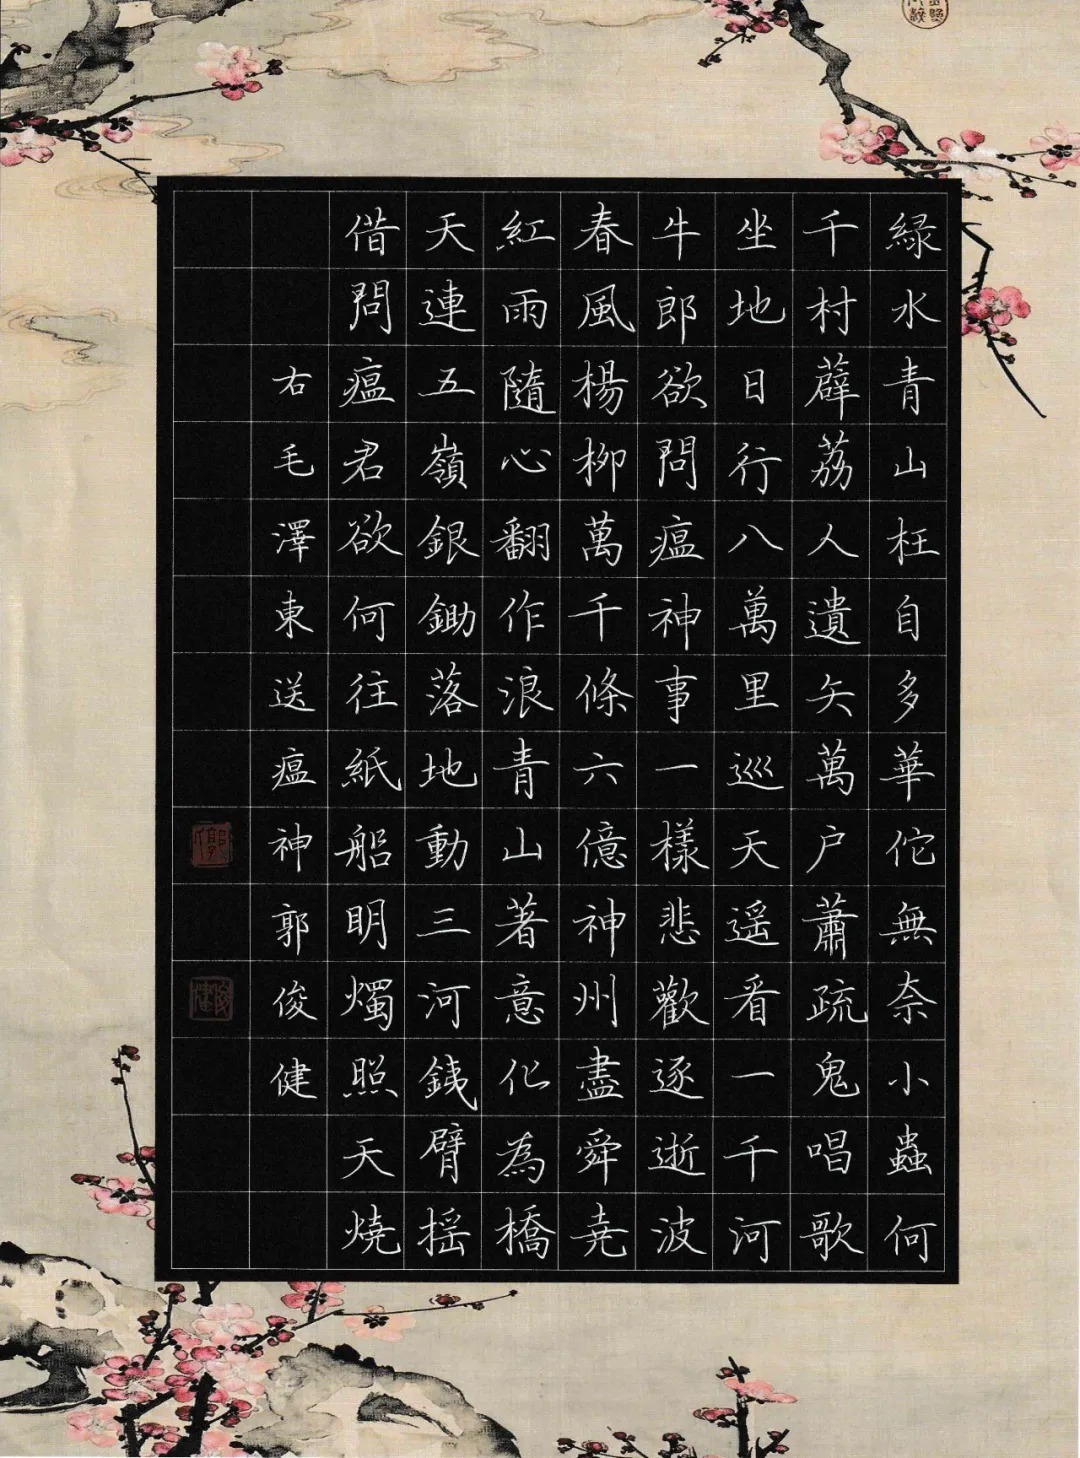 綠水青山枉自多華佗無奈小蟲何
千村薜荔人遺矢萬户蕭疏鬼唱歌
坐地日行八萬里巡天遥看一千河
牛郎欲問瘟神事一樣悲歡逐逝波
春風楊柳萬千條六億神州盡舜堯
紅雨隨心翻作浪青山著意化為橋
天連五嶺銀鋤落地動三河鐵臂摇
借問瘟君欲何往紙船明燭照天燒
右毛澤東送瘟神郭俊健